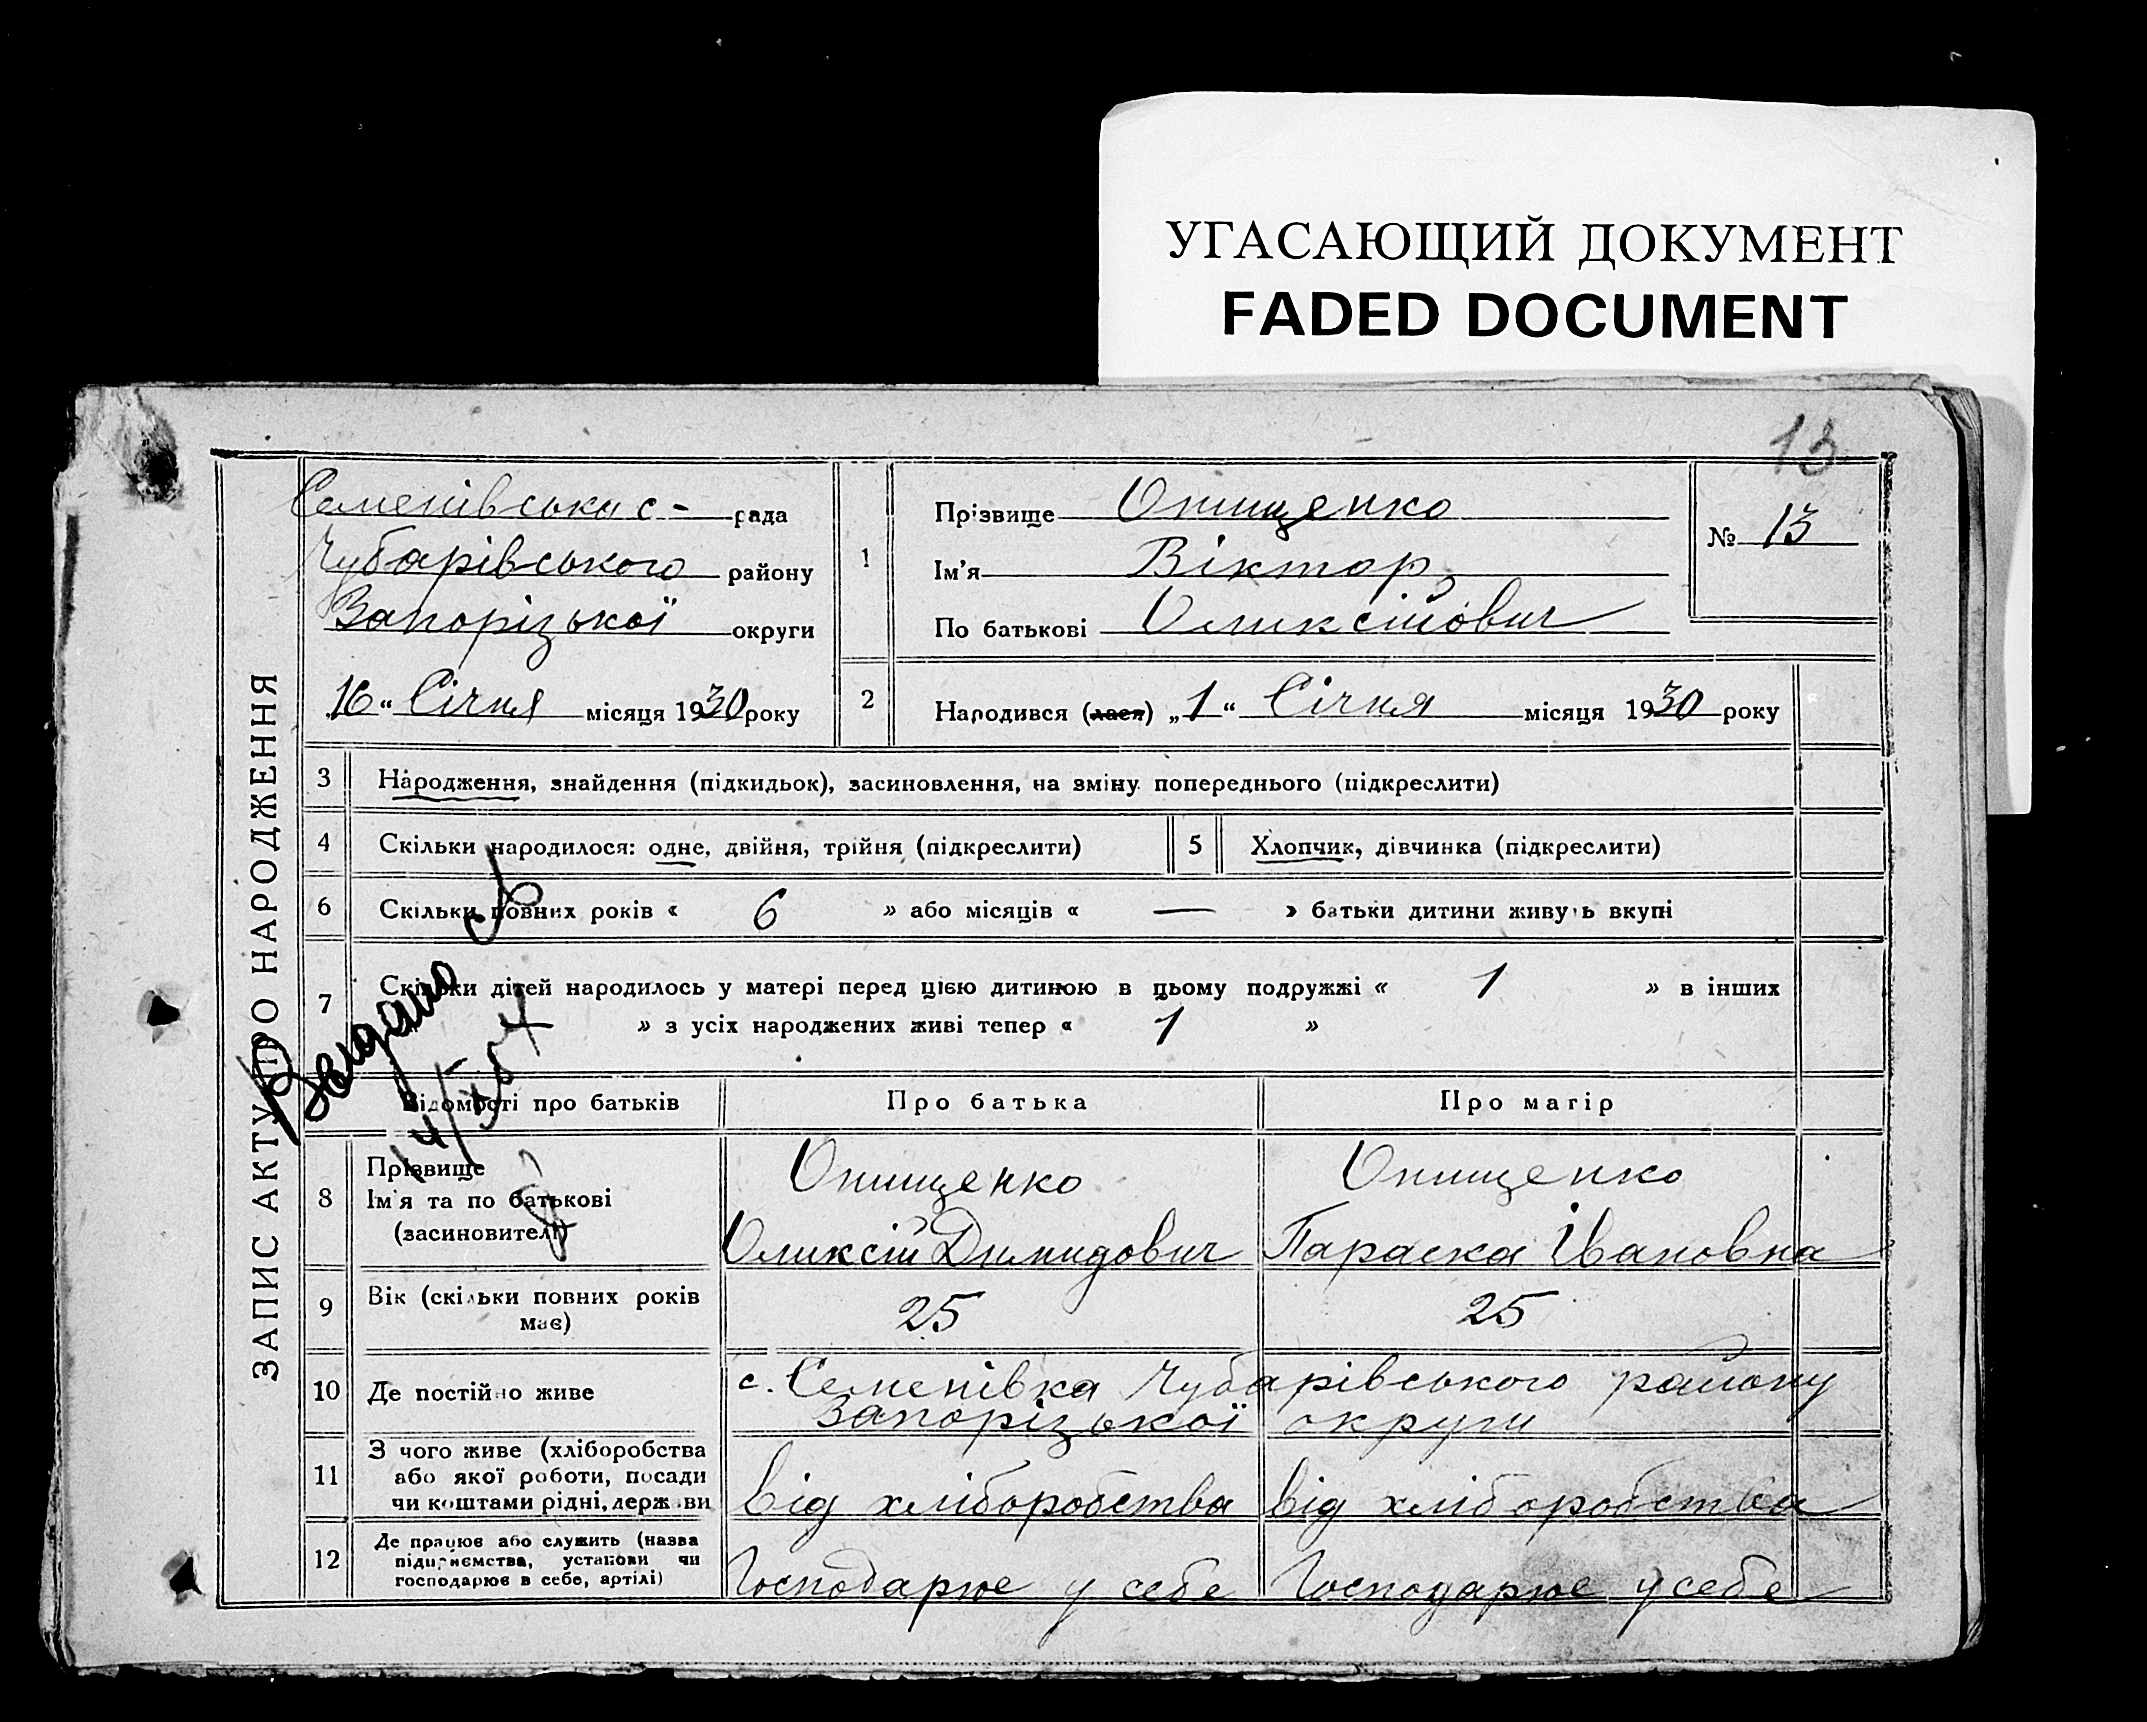 УГАСАЮЩИЙ ДОКУМЕНТ
FADED DOCUMENT
13
ЗАПИС АКТУ ПРО НАРОДЖЕННЯ
Семенівська с - рада
Чубарівського району
Запорізької округи
16 “ Січня місяця 1930 року
1
Прізвище Онищенко
Ім'я Віктор
По батькові Оликсійович
№ 13
2
Народився (лася) „ 1 “ Січня місяця 1930 року
3 Народження, знайдення (підкидьок), засиновлення, на зміну попереднього (підкреслити)
4 Скільки народилося: одне, двійня, трійня (підкреслити) 5 Хлопчик, дівчинка (підкреслити)
6 Скільки повних років « 6 » або місяців « — » батьки дитини живуть вкупі
7 Скільки дітей народилось у матері перед цією дитиною в цьому подружжі « 1 » в інших
» з усіх народжених живі тепер « 1 »
Відомості про батьків Про батька Про матір
8 Прізвище
Ім'я та по батькові
(засиновителі)
Онищенко Онищенко
Оликсій Димидович Параска Івановна
9 Вік (скільки повних років має) 25 25
10 Де постійно живе с. Семенівка Чубарівського району
Запорізької округи
11 З чого живе (хліборобства
або якої роботи, посади
чи коштами рідні, держави
від хліборобства від хліборобства
12 Де працює або служить (назва
підприємства, установи чи
господарює в себе, артілі)
Господарює у себе Господарює у себе